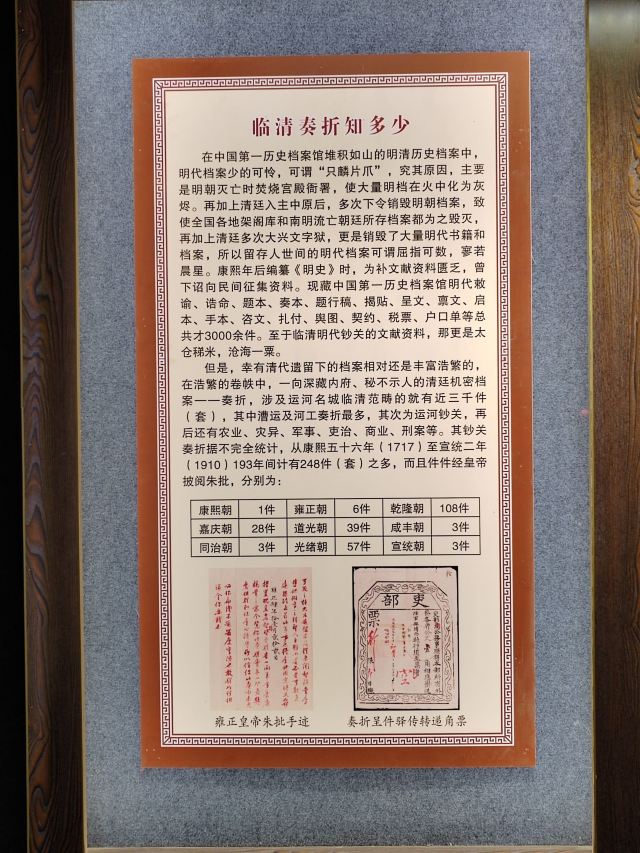 临清奏折知多少
在中国第一历史档案馆堆积如山的明清历史档案中，
明代档案少的可怜，可谓“只麟片爪”，究其原因，主要
是明朝灭亡时焚烧宫殿衙署，使大量明档在火中化为灰
烬。再加上清廷入主中原后，多次下令销毁明朝档案，致
使全国各地架阁库和南明流亡朝廷所存档案都为之毁灭，
再加上清廷多次大兴文字狱，更是销毁了大量明代书籍和
档案，所以留存人世间的明代档案可谓屈指可数，寥若
晨星。康熙年后编纂《明史》时，为补文献资料匮乏，曾
下诏向民间征集资料。现藏中国第一历史档案馆明代敕
谕、诰命、题本、奏本、题行稿、揭贴、呈文、禀文、启
本、手本、咨文、扎付、舆图、契约、税票、户口单等总
共才3000余件。至于临清明代钞关的文献资料，那更是太
仓稊米，沧海一粟。
但是，幸有清代遗留下的档案相对还是丰富浩繁的，
在浩繁的卷帙中，一向深藏内府、秘不示人的清廷机密档
案——奏折，涉及运河名城临清范畴的就有近三千件
（套），其中漕运及河工奏折最多，其次为运河钞关，再
后还有农业、灾异、军事、吏治、商业、刑案等。其钞关
奏折据不完全统计，从康熙五十六年（1717）至宣统二年
（1910）193年间计有248件（套）之多，而且件件经皇帝
披阅朱批，分别为：
康熙朝 1件 雍正朝 6件 乾隆朝 108件
嘉庆朝 28件 道光朝 39件 咸丰朝 3件
同治朝 3件 光绪朝 57件 宣统朝 3件
吏部
雍正皇帝朱批手迹
奏折呈件驿传转递角票